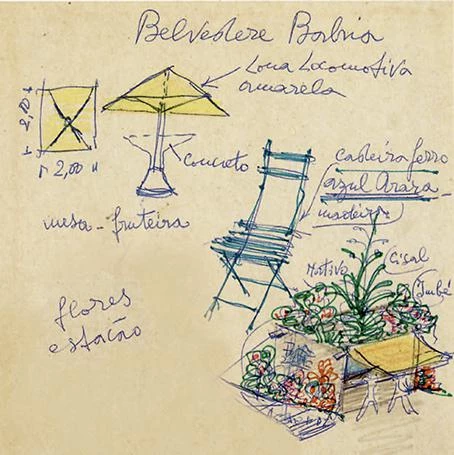 Belvedere Bahia
Lona Locomotiva
amarela
2,00
2,00
concreto
mesa - fruteira
cadeira ferro
azul Arara
madeira
Cisal
Imbé
flores
estação